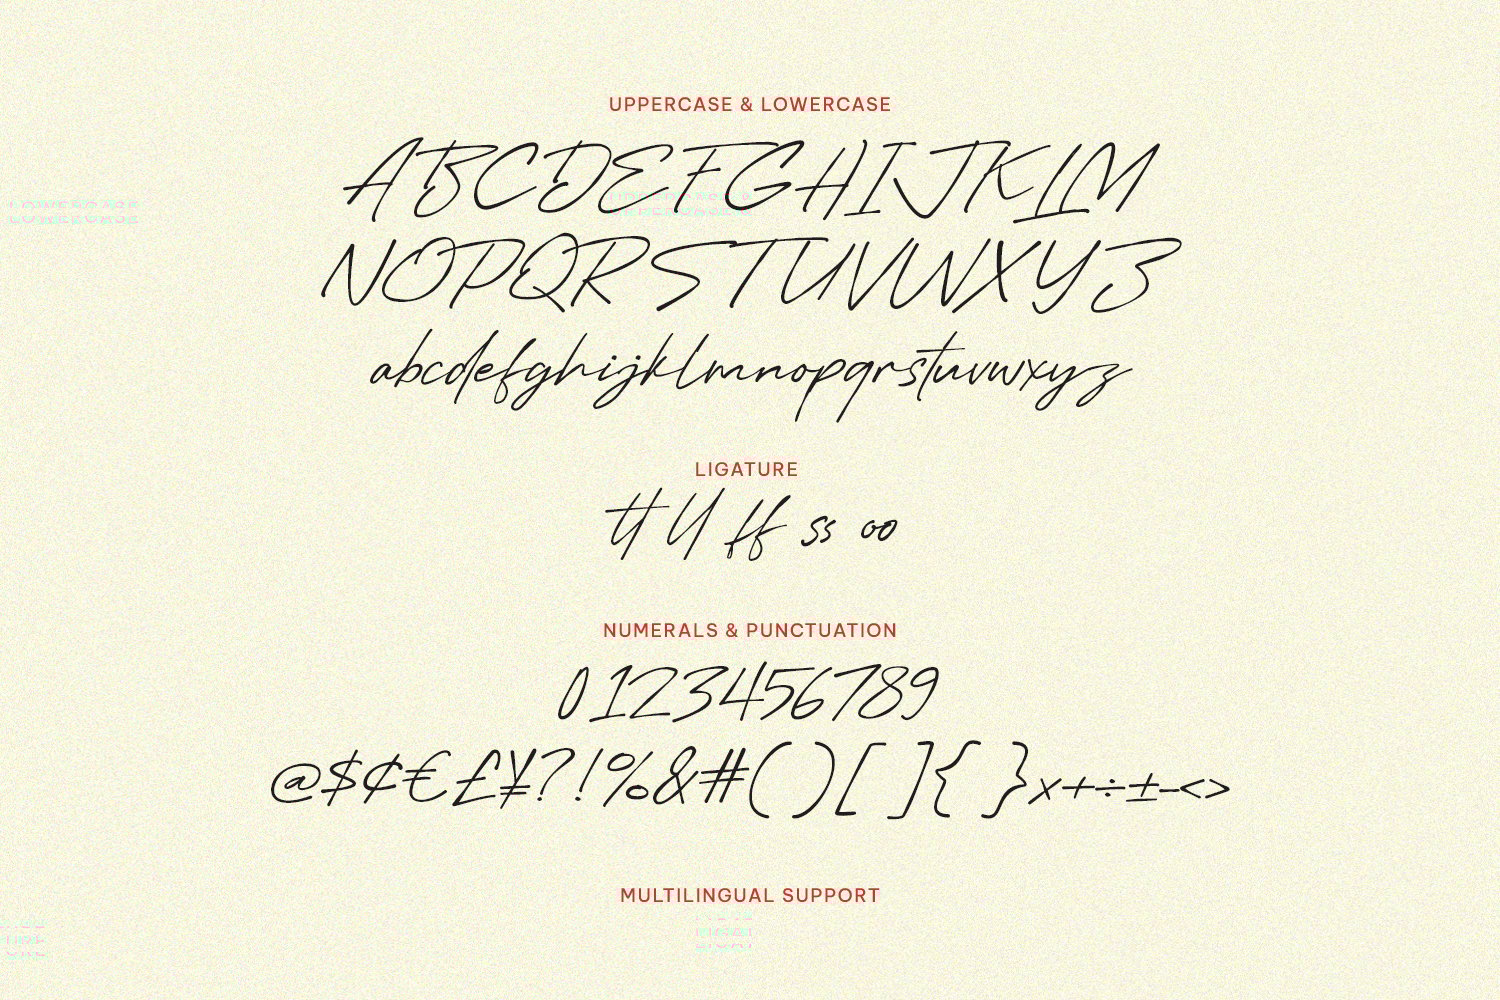 UPPERCASE & LOWERCASE
ABCDEFGHIJKLM
NOPQRSTUVWXYZ
abcdefghijklmnopqrstuvwxyz
LIGATURE
tt ll ff ss oo
NUMERALS & PUNCTUATION
0123456789
@$¢€£¥?!%&#()[]{}×+÷±-<>
MULTILINGUAL SUPPORT